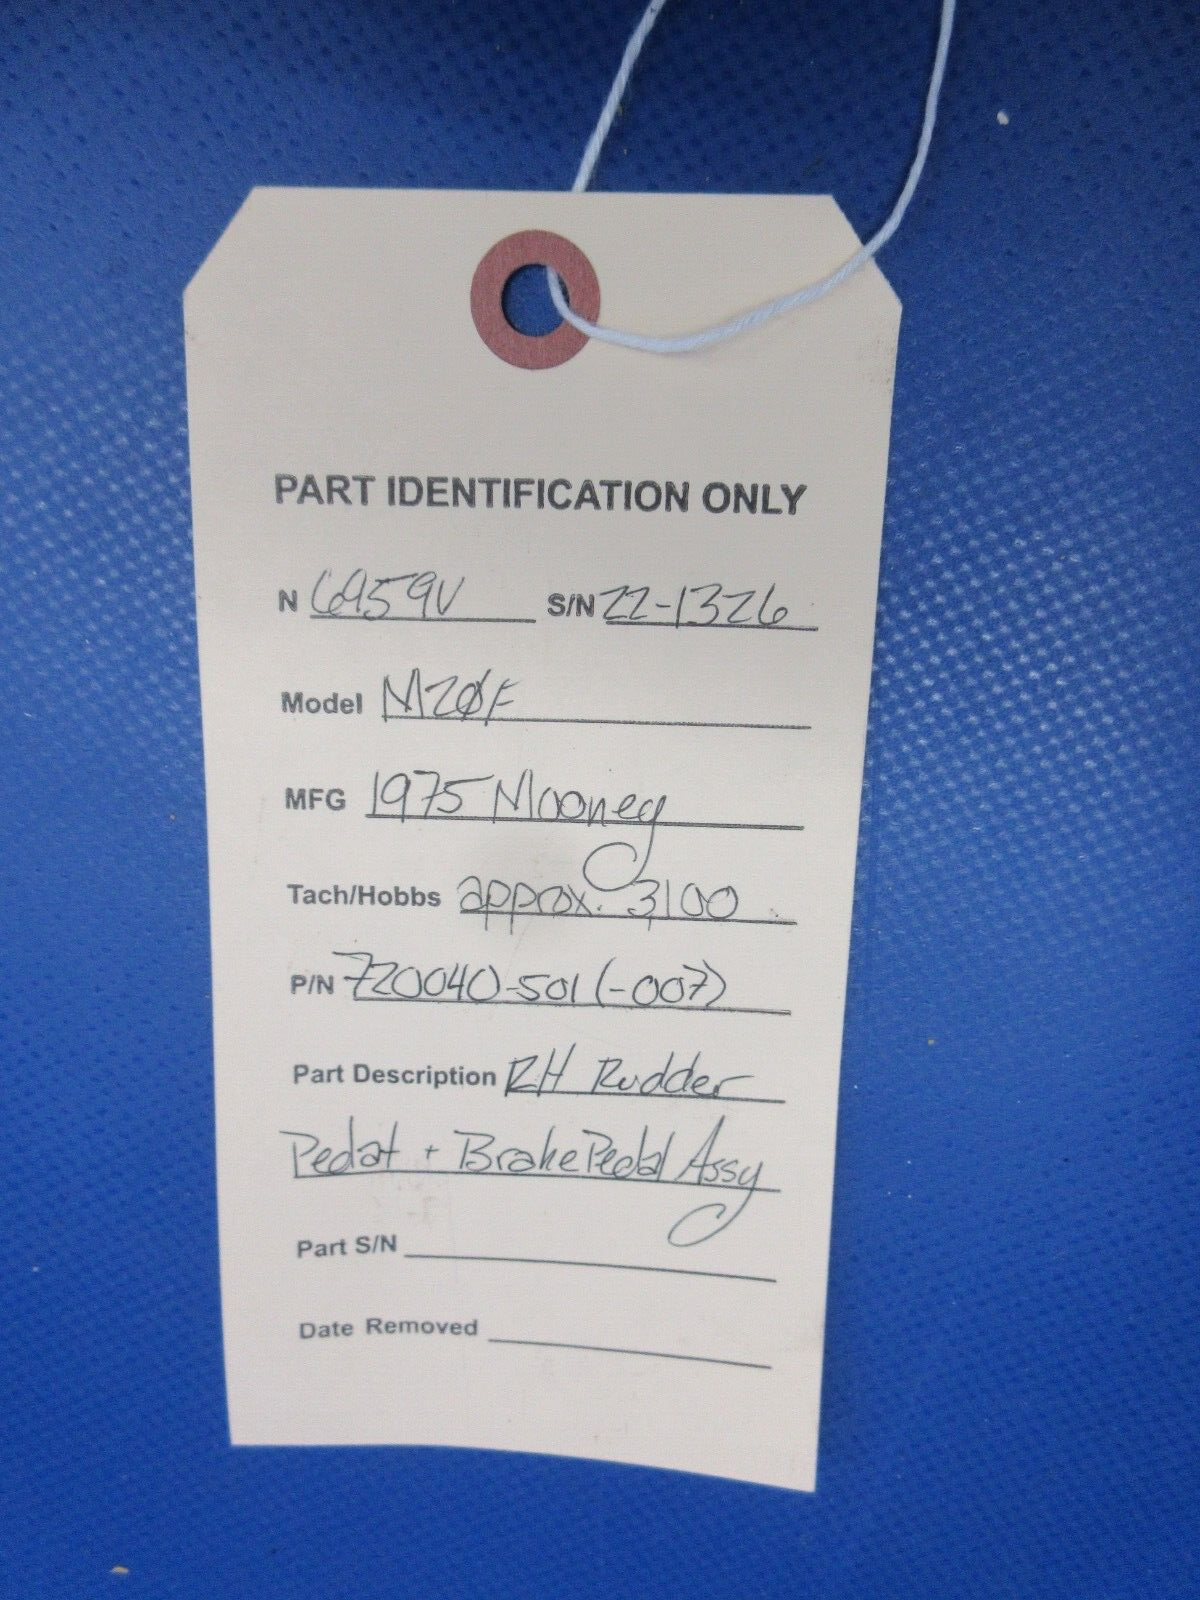 PART IDENTIFICATION ONLY
N 6959V S/N 22-1326
Model M20F
MFG 1975 Mooney
Tach/Hobbs approx. 3,100
P/N 720040-501 (-007)
Part Description RH Rudder
Pedal + Brake Pedal Assy
Part S/N
Date Removed